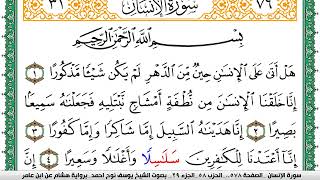 ٣١ سُورَةُ الإِنسَانِ ٧٦
بِسْمِ اللَّهِ الرَّحْمَٰنِ الرَّحِيمِ
هَلْ أَتَىٰ عَلَى الْإِنسَٰنِ حِينٌ مِّنَ الدَّهْرِ لَمْ يَكُن شَيْـًٔا مَّذْكُورًا ١
إِنَّا خَلَقْنَا الْإِنسَٰنَ مِن نُّطْفَةٍ أَمْشَاجٍ نَّبْتَلِيهِ فَجَعَلْنَٰهُ سَمِيعًۢا
بَصِيرًا ٢ إِنَّا هَدَيْنَٰهُ السَّبِيلَ إِمَّا شَاكِرًا وَإِمَّا كَفُورًا ٣
إِنَّا أَعْتَدْنَا لِلْكَٰفِرِينَ سَلَٰسِلًا وَأَغْلَٰلًا وَسَعِيرًا ٤ إِنَّ
سورة الإنسان . الصفحة ٥٧٨ .. الحزب ٥٨ . الجزء ٢٩ . بصوت الشيخ يوسف نوح احمد. برواية هشام عن ابن عامر